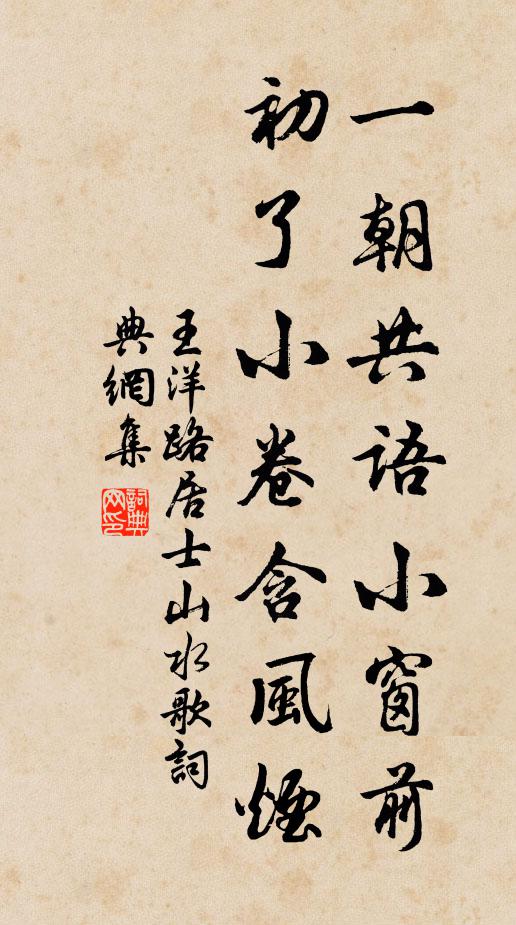 一朝共語小窗前
初了小卷含風煙
王洋路居士山水歌詞
典網集
詞典網印